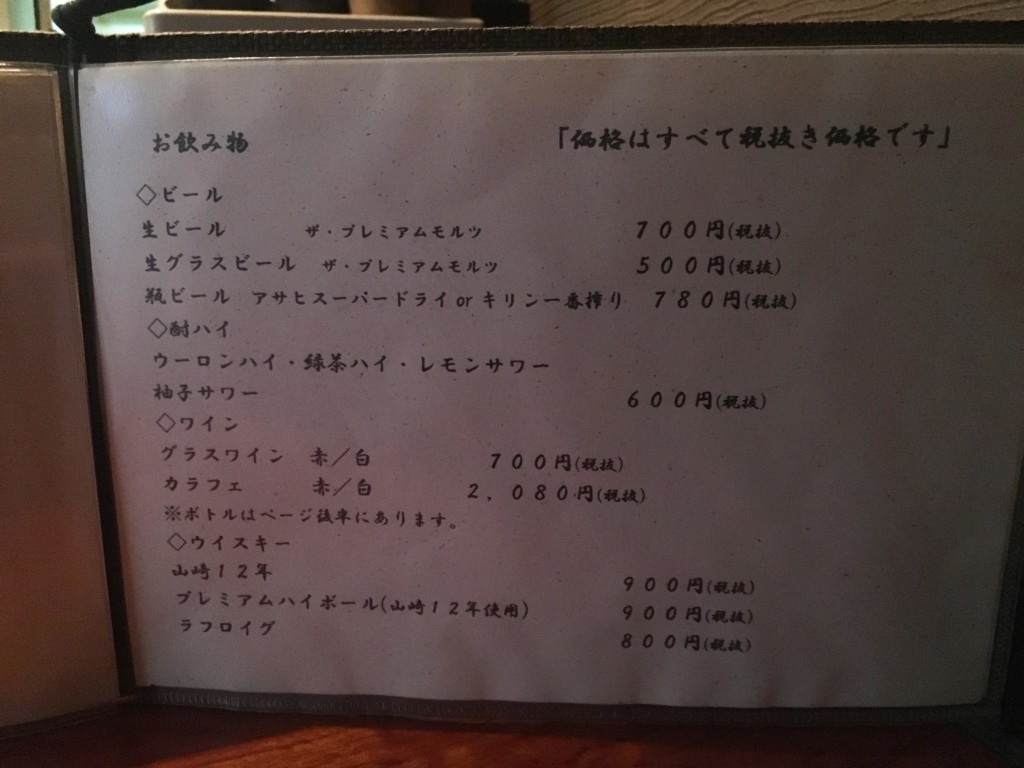 お飲み物 「価格はすべて税抜き価格です」
◇ビール
生ビール ザ・プレミアムモルツ 700円(税抜)
生グラスビール ザ・プレミアムモルツ 500円(税抜)
瓶ビール アサヒスーパードライorキリン一番搾り 780円(税抜)
◇酎ハイ
ウーロンハイ・緑茶ハイ・レモンサワー
柚子サワー 600円(税抜)
◇ワイン
グラスワイン 赤/白 700円(税抜)
カラフェ 赤/白 2,080円(税抜)
※ボトルはページ後半にあります。
◇ウイスキー
山崎12年 900円(税抜)
プレミアムハイボール(山崎12年使用) 900円(税抜)
ラフロイグ 800円(税抜)